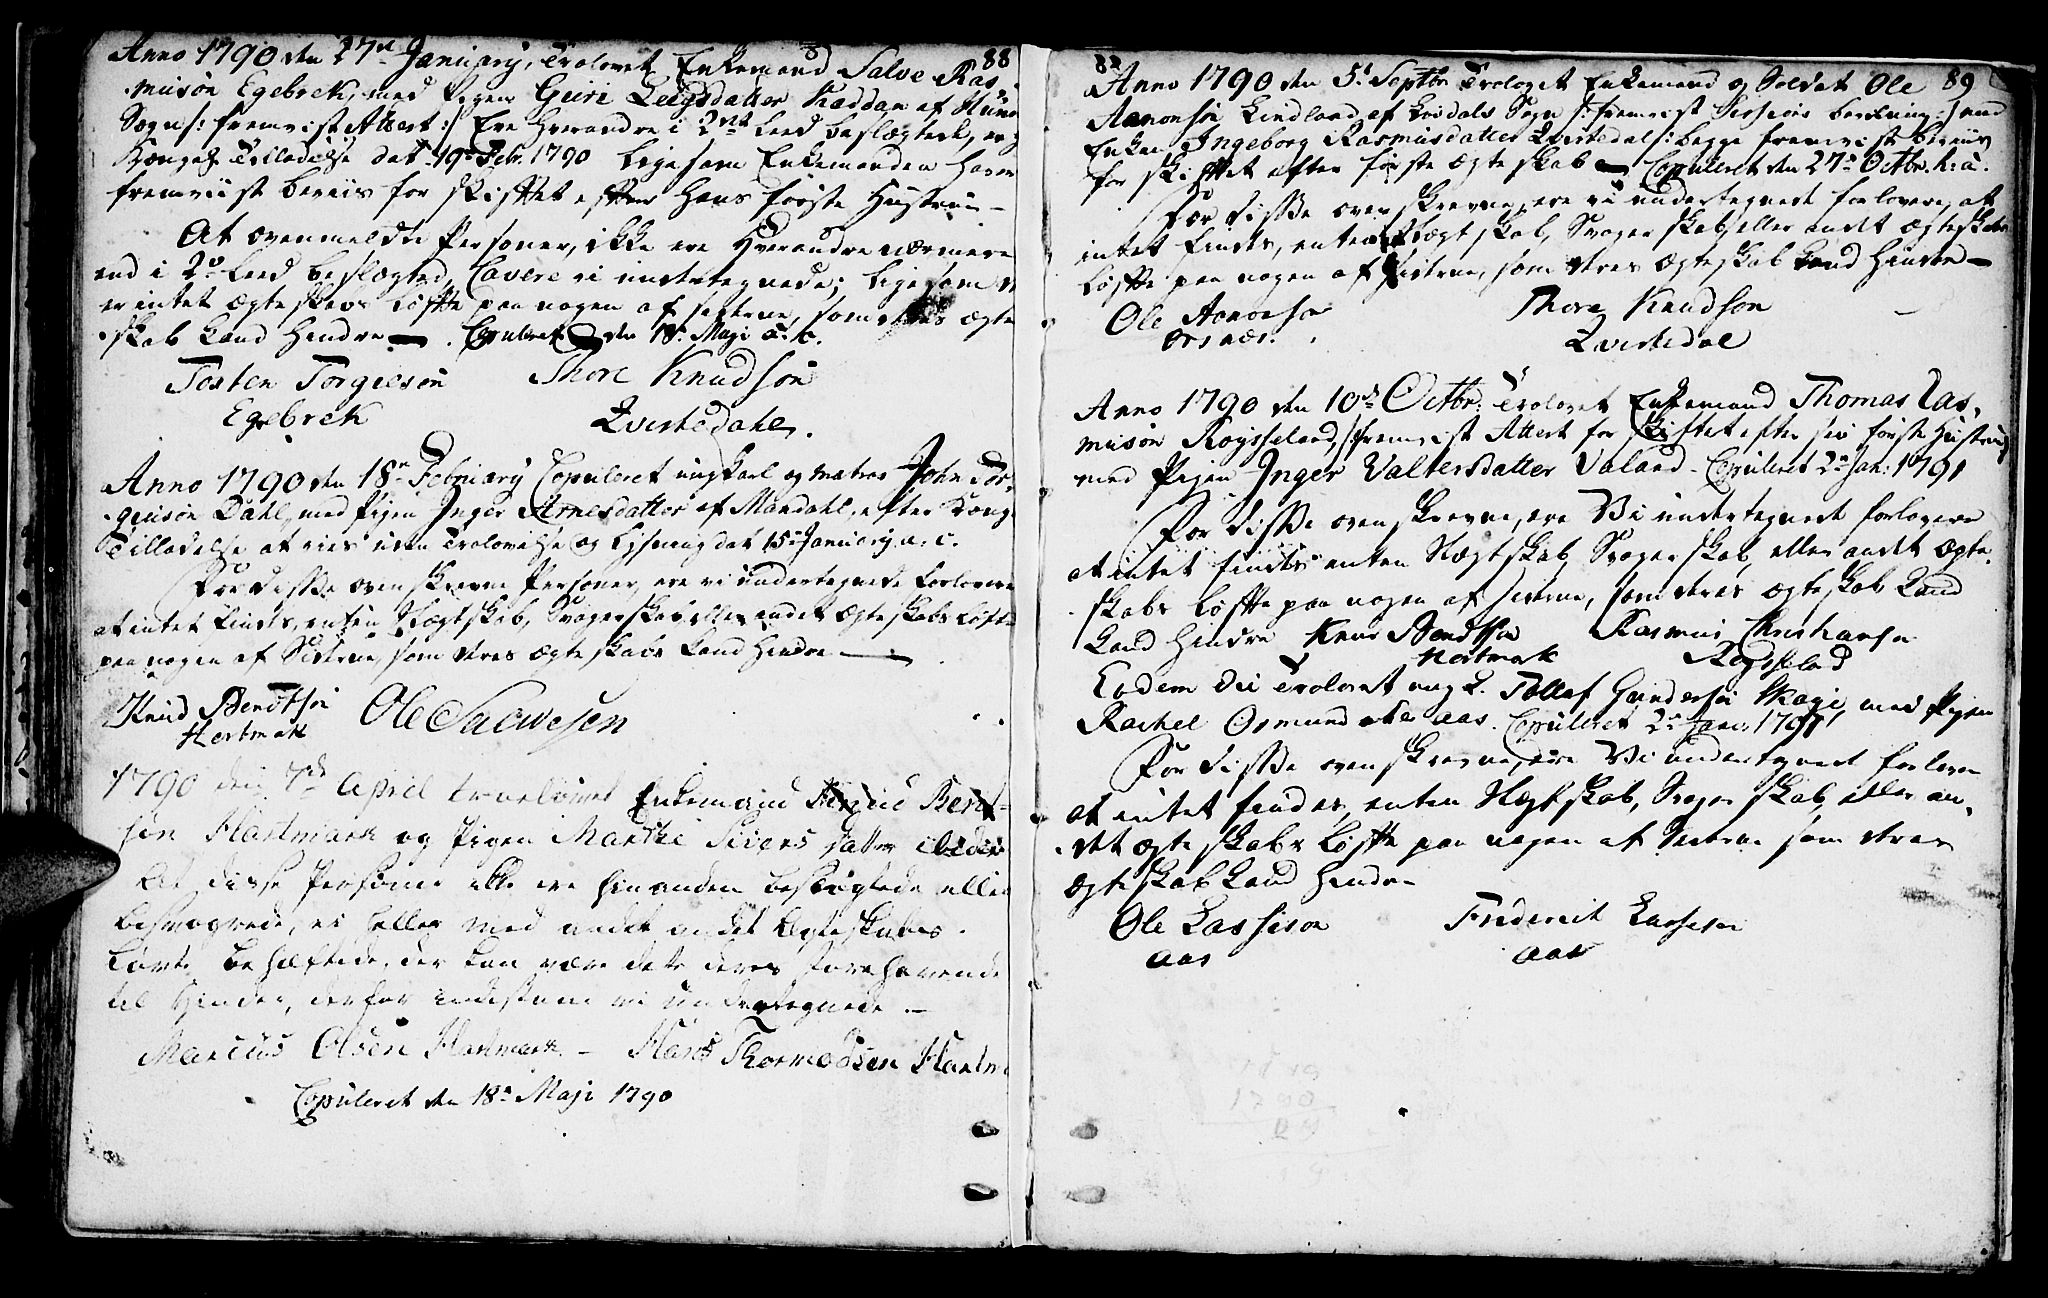 88
Anno 1790 den 27de Januarj, Trolovet Enkemand Salve Ras-
musøn Egebrek, med Pigen Guri Leegsdatter Haddan af
Sogn /: fremvist Attest :/ Ere Hverandre i 2det Leed beslægtede, og
Kongel. Tilladelse dat. 19de Febr. 1790 ligesom Enkemanden haver
fremviist beviis for Skiftet efter hans første Hustrue -
At ovenmeldte Personer, ikke ere Hverandre nærmere
end i 2det Leed beslægted, Cavere vi undertegnede; ligesom
er intet Ægteskabs Løfte paa nogen af Siderne, som deres Ægte
skab kand Hindre — . Copuleret den 18de Maji a. c.
Tosten Torgiesøn Thore Knudsøn
Egebrek Qvistedahl.
Anno 1790 den 18de Februarj Copuleret ungkarl og matros John Tor-
giusøn Dahl, med Pigen Inger Arnesdatter af Mandahl, efter Kong.
Tilladelse at vies uden Trolovelse og Lysning dat 15de Januarj a. c.
For disse ovenskrevne Personer, ere vi undertegnede Forlovere
at intet findes, enten Slægtskab, Svogerskab eller andet Ægteskabs Løfte
paa nogen af Siderne, som deres Ægteskab kand Hindre —
Knud Bendtsøn Ole Salwesen
Hortmark
1790 den 7de April troelovet Enkemand Knud Bent-
søn Hartmark og Pigen Marthe Siversdatter ibidem
At disse Personer ikke ere hinanden beslægtede eller
besvogrede, ei heller med andet Ægteskabs
Løvte behæftede, der kan være dette deres forehavende
til Hinder, derfor indestaae vi undertegnede. —
Marcus Olsen Hartmark. — Hans Thormodsen Hartm
Copuleret den 18de Maji 1790
89
Anno 1790 den 5te Septbr Trolovet Enkemand og Soldat Ole
Aanonsøn Lindland af Sogn /: fremvist Sessions bevilning :/ med
Enken Ingeborg Rasmusdatter Qvistedal /: begge fremvist beviis
for skiftet efter første Ægteskab — Copuleret den 27de Octbr. h. a.
For disse ovenskrevne, ere vi undertegnede forlovere, at
intet findes, enten Slægtskab, Svogerskab eller andet Ægteskabs
Løfte paa nogen af Siderne, som deres Ægteskab kand Hindre —
Ole Aanonsøn Thore Knudsøn
Qvistedal
Anno 1790 den 10de Octbr: Trolovet Enkemand Thomas Ras-
musøn Røysseland, /: fremvist Attest for Skiftet efter sin første Hustrue
med Pigen Inger Valtersdatter Valand - Copuleret 2de Jan: 1791
For disse ovenskrevne, ere Vi undertegnede forlovere
at intet findes enten Slægtskab, Svogerskab, eller andet Ægte-
skabs Løfte paa nogen af Siderne, som deres Ægteskab kand
kand Hindre Knud Bendtsøn Rasmus Christiansen
Hortmark Røysseland
Eodem Die Trolovet ung k. Tollaf Gundersøn Skagi, med Pigen
Rachel Osmundsdatter Aas. Copuleret 2de Jan: 1791
For disse ovenskrevne, ere Vi undertegnede forlovere
at intet findes, enten Slægtskab, Svogerskab, eller an-
det Ægteskabs Løfte paa nogen af Siderne som deres
Ægteskab kand Hindre
Ole Lassesøn Friderick Lassesen
Aas Aas
1790